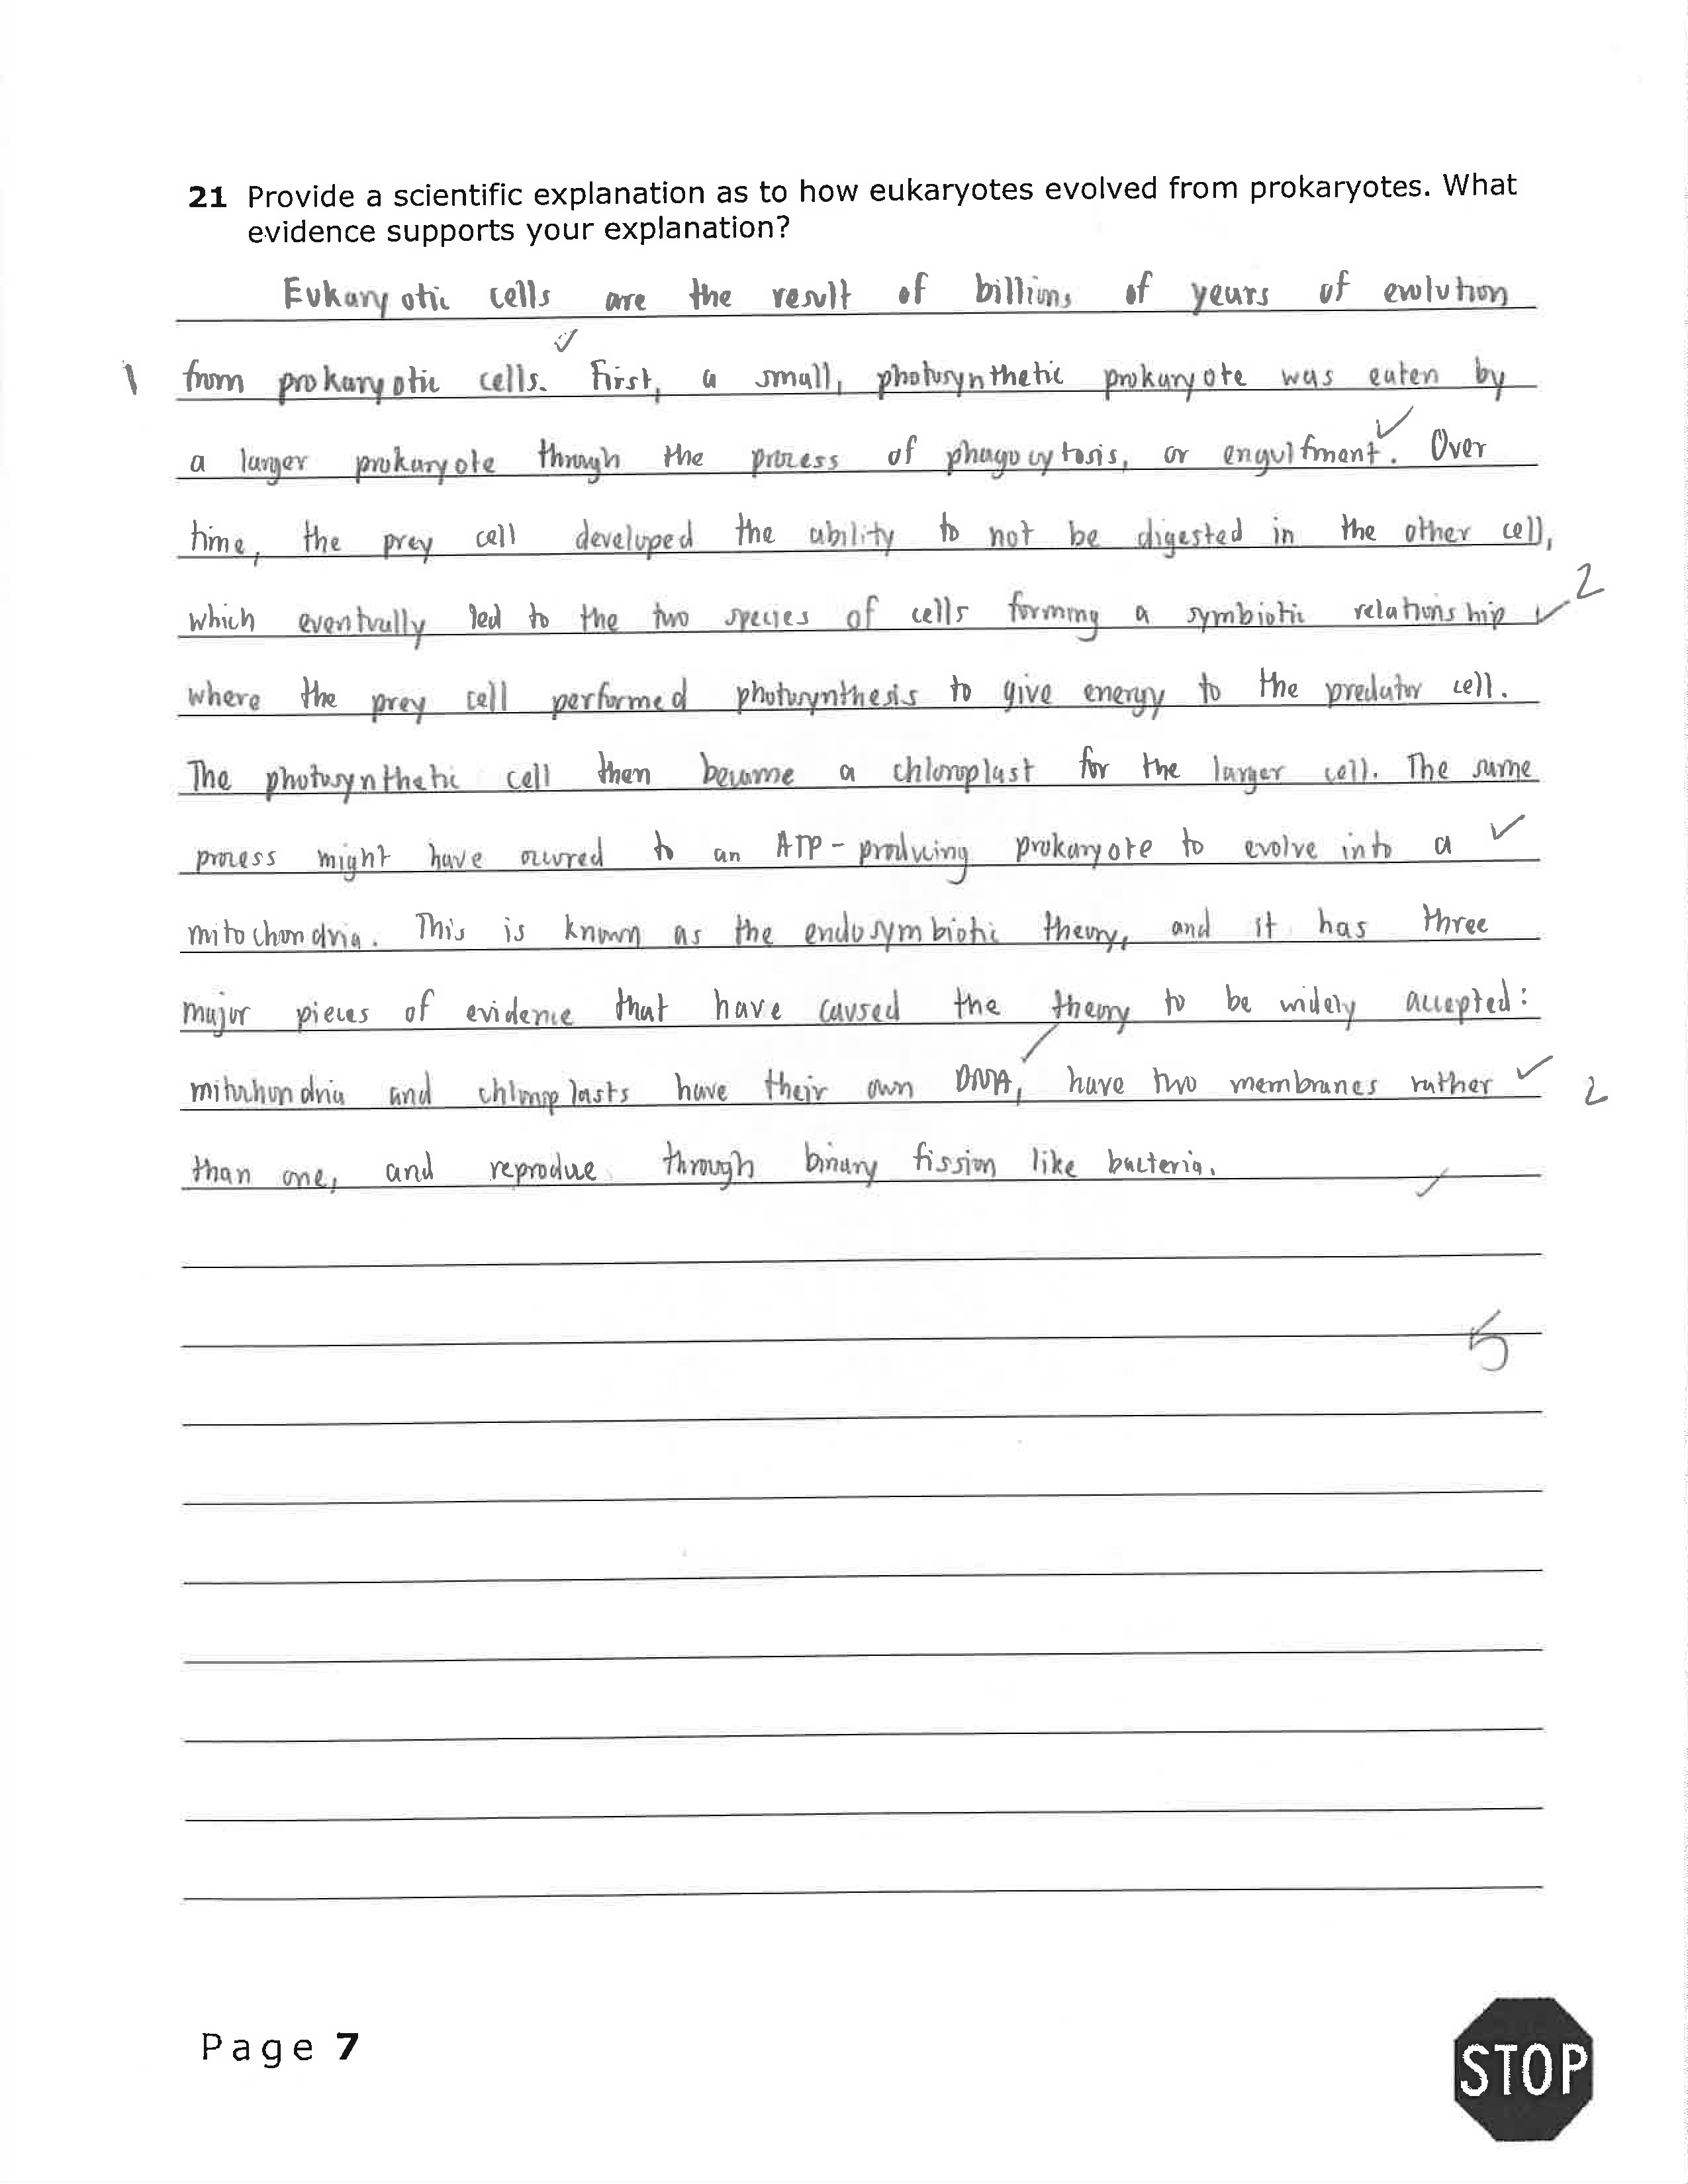 21 Provide a scientific explanation as to how eukaryotes evolved from prokaryotes. What
evidence supports your explanation?
Eukaryotic cells are the result of billions of years of evolution
1 from prokaryotic cells. First, a small, photosynthetic prokaryote was eaten by
a larger prokaryote through the process of phagocytosis, or engulfment. Over
time, the prey cell developed the ability to not be digested in the other cell,
which eventually led to the two species of cells forming a symbiotic relationship 2
where the prey cell performed photosynthesis to give energy to the predator cell.
The photosynthetic cell then became a chloroplast for the larger cell. The same
process might have occured to an ATP-producing prokaryote to evolve into a
mitochondria. This is known as the endosymbiotic theory, and it has three
major pieces of evidence that have caused the theory to be widely accepted:
mitochondria and chloroplasts have their own DNA, have two membranes rather 2
than one, and reproduce through binary fission like bacteria.
5
Page 7
STOP